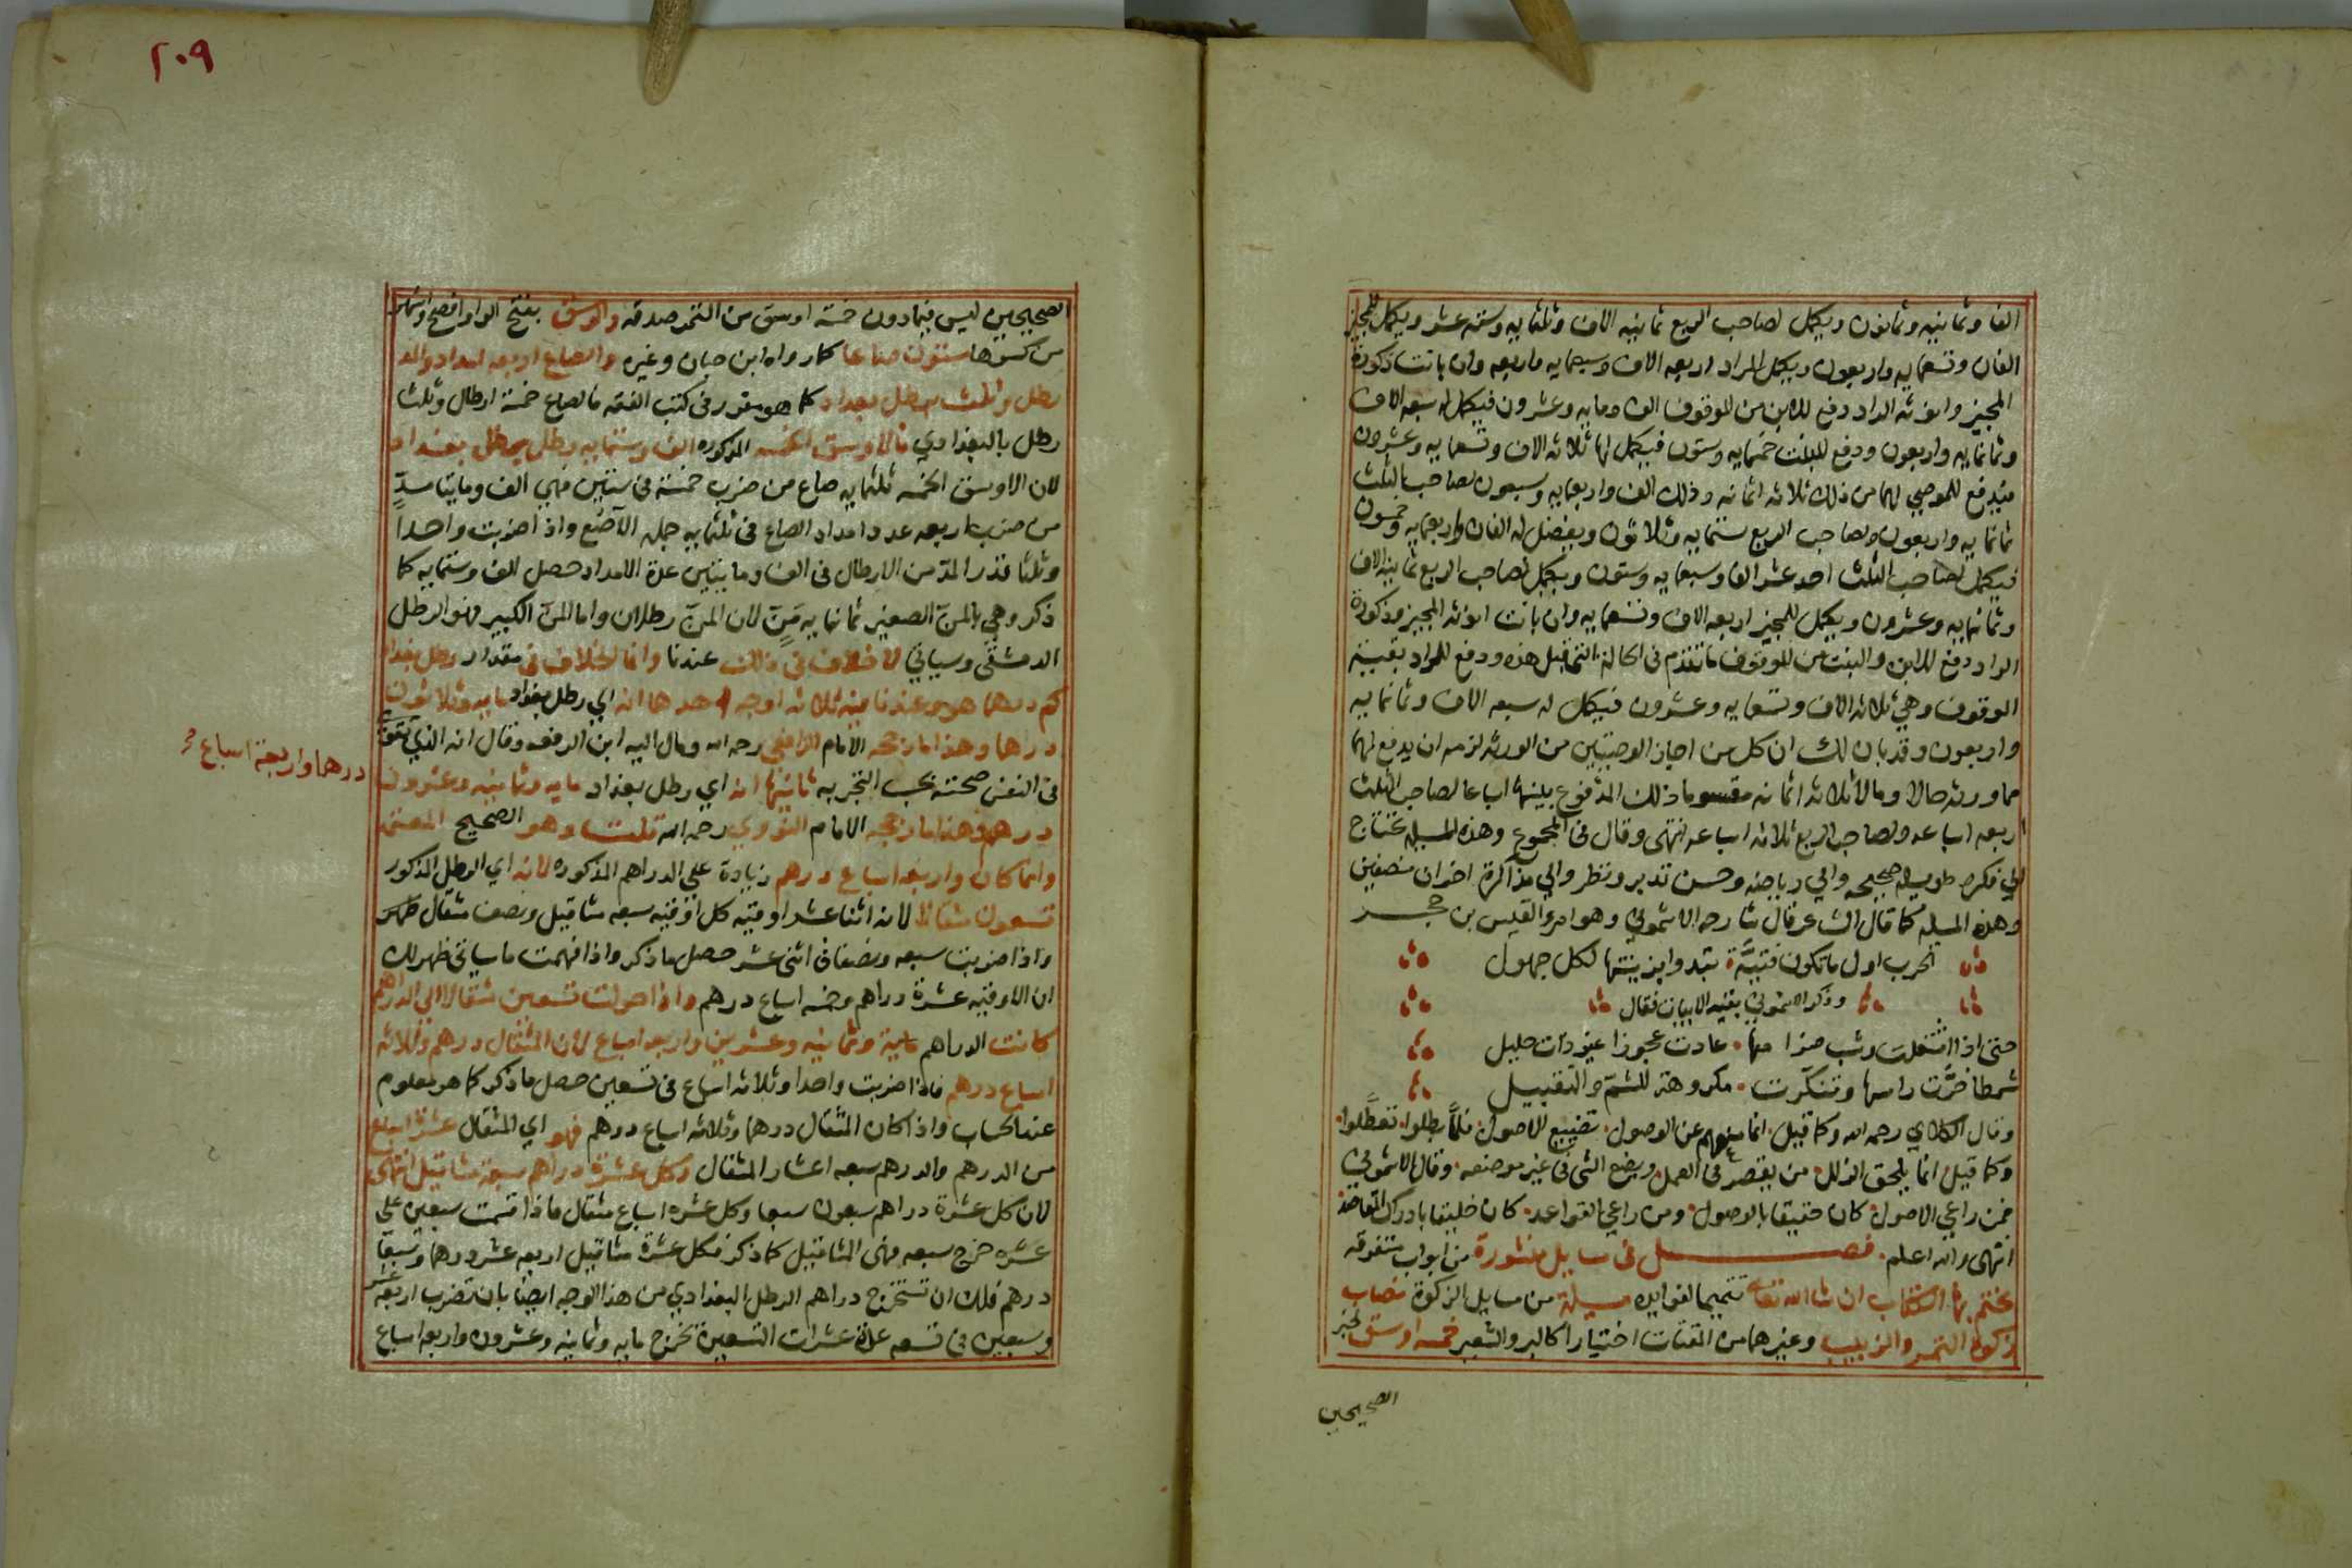 الفا وثمانيه وثمانون ويكمل لصاحب الربع ثمانيه الاف وثلثمايه وسته عشر ويكمل للمجيز
الفان وتسعمايه واربعون ويكمل للراد اربعه الاف وسبعمايه واربعه وان باتت ذكورة
المجيز وانوثه الراد دفع للابن من الموقوف الف ومايه وعشرون فيكمل له سبعه الاف
وثمانمايه واربعون ودفع للبنت خمسمايه وستون فيكمل لها ثلاثه الاف وتسعمايه وعشرون
فيدفع للموصي لهما من ذلك ثلاثه اثمانه وذلك الف واربعمايه وسبعون لصاحب الثلث
ثمانمايه واربعون ولصاحب الربع ستمايه وثلاثون ويفضل له الفان واربعمايه وخمسون
فيكمل لصاحب الثلث احد عشر الفا وسبعمايه وستون ويكمل لصاحب الربع ثمانيه الاف
وثمانمايه وعشرون ويكمل للمجيز اربعه الاف وتسعمايه وان بانت انوثه المجيز وذكورة
الراد دفع للابن والبنت من الموقوف ما تقدم في الحالة التي قبل هذه ودفع للراد بقية
الموقوف وهي ثلاثه الاف وتسعمايه وعشرون فيكمل له سبعه الاف وثمانمايه
واربعون وقد بان لك ان كل من اجاز الوصيتين من الورثه لزمه ان يدفع لهما
مما ورثه حالا ومالا ثلاثه اثمانه مقسوما ذلك المدفوع بينهما اسباعا لصاحب الثلث
اربعه اسباعه ولصاحب الربع ثلاثه اسباعه انتهى وقال في المجموع وهذه المسيله تحتاج
الي فكره طويله صحيحه والي رياضه وحسن تدبر ونظر والي مذاكرة اخوان منصفين
وهذه المسيله كما قال الشاعر قال شارحه الاشموني وهو امرء القيس بن حجر
الحرب اول ما تكون فتيَّة تبدوا بزينتها لكل جهول
وذكر الاشموني بقيه الابيات فقال
حتى اذا اشتعلت وشب ضرامها عادت عجوزا غير ذات حليل
شمطا جزَّت راسها وتنكرت مكروهة للشم والتقبيل
وقال الكلائي رحمه الله وكما قيل انما منعهم عن الوصول تضييع الاصول فلما بطلوا تعطَّلوا
وكما قيل انما يلحق الزلل من يقصر في العمل ويضع الشي في غير موضعه وقال الاشموني
فمن راعي الاصول كان حقيقا بالوصول ومن راعي القواعد كان خليقا بادراك المقاصد
انتهى والله اعلم فصل في مسايل منثورة من ابواب متفرقه
نختم بها الكتاب ان شا الله تعالى تتميما لفوايده مسيلة من مسايل الزكوة نصاب
زكوة التمر والزبيب وغيرهما من المقتات اختيارا كالبر والشعير خمسه اوسق لخبر
الصحيحين
٢٠٩
الصحيحين ليس فيما دون خمسة اوسق من التمر صدقه والوسق بفتح الواو افصح واشهر
من كسرها ستون صاعا كما رواه ابن حبان وغيره والصاع اربعه امداد والمد
رطل وثلث برطل بغداد كما هو مقرر في كتب الفقه فالصاع خمسة ارطال وثلث
رطل بالبغدادي فالاوسق الخمسه المذكوره الف وستمايه رطل برطل بغداد
لان الاوسق الخمسه ثلثمايه صاع من ضرب خمسة في ستين فهي الف ومايتا مدٍّ
من ضرب اربعه عدد امداد الصاع في ثلثمايه جملة الآصُع واذا ضربت واحدا
وثلثا قدر المدّ من الارطال في الف ومايتين عدة الامداد حصل الف وستمايه كما
ذكر وهي بالمنّ الصغير ثمانمايه مَنٍّ لان المنّ رطلان واما المنّ الكبير فهو الرطل
الدمشقي وسياتي لا خلاف في ذلك عندنا وانما الخلاف في مقدار رطل بغداد
كم درهما هو وعندنا فيه ثلاثه اوجه احدها انه اي رطل بغداد مايه وثلاثون
درهما وهذا ما رجحه الامام الرافعي رحمه الله ومال اليه ابن الرفعه وقال انه الذي تقوى
في النفس صحته بحسب التجربه ثانيها انه اي رطل بغداد مايه وثمانيه وعشرون
درهما واربعة اسباع صح
درهم وهذا ما رجحه الامام النووي رحمه الله قلت وهو الصحيح المعتمد
وانما كان واربعه اسباع درهم زيادة على الدراهم المذكوره لانه اي الرطل المذكور
تسعون مثقالا لانه اثنا عشر اوقيه كل اوقيه سبعه مثاقيل ونصف مثقال
واذا ضربت سبعه ونصفا في اثني عشر حصل ما ذكر واذا فهمت ما سياتي ظهر لك
ان الاوقيه عشرة دراهم وخمسه اسباع درهم واذا حولت تسعين مثقالا الى الدراهم
كانت الدراهم ماية وثمانيه وعشرين واربعه اسباع لان المثقال درهم وثلاثه
اسباع درهم فاذا ضربت واحدا وثلاثه اسباع في تسعين حصل ما ذكر كما هو معلوم
عند الحساب واذا كان المثقال درهما وثلاثه اسباع درهم فهو اي المثقال عشرة اسباع
من الدرهم والدرهم سبعه اعشار المثقال وكل عشرة دراهم سبعة مثاقيل انتهى
لان كل عشرة دراهم سبعون سبعا وكل عشره اسباع مثقال فاذا قسمت سبعين على
عشره خرج سبعه فهي المثاقيل كما ذكر فكل عشرة مثاقيل اربعه عشر درهما وسبعا
درهم فلك ان تستخرج دراهم الرطل البغدادي من هذا الوجه ايضا بان تضرب اربعه عشر
وسبعين في تسعه عدة عشرات التسعين تخرج مايه وثمانيه وعشرون واربعه اسباع